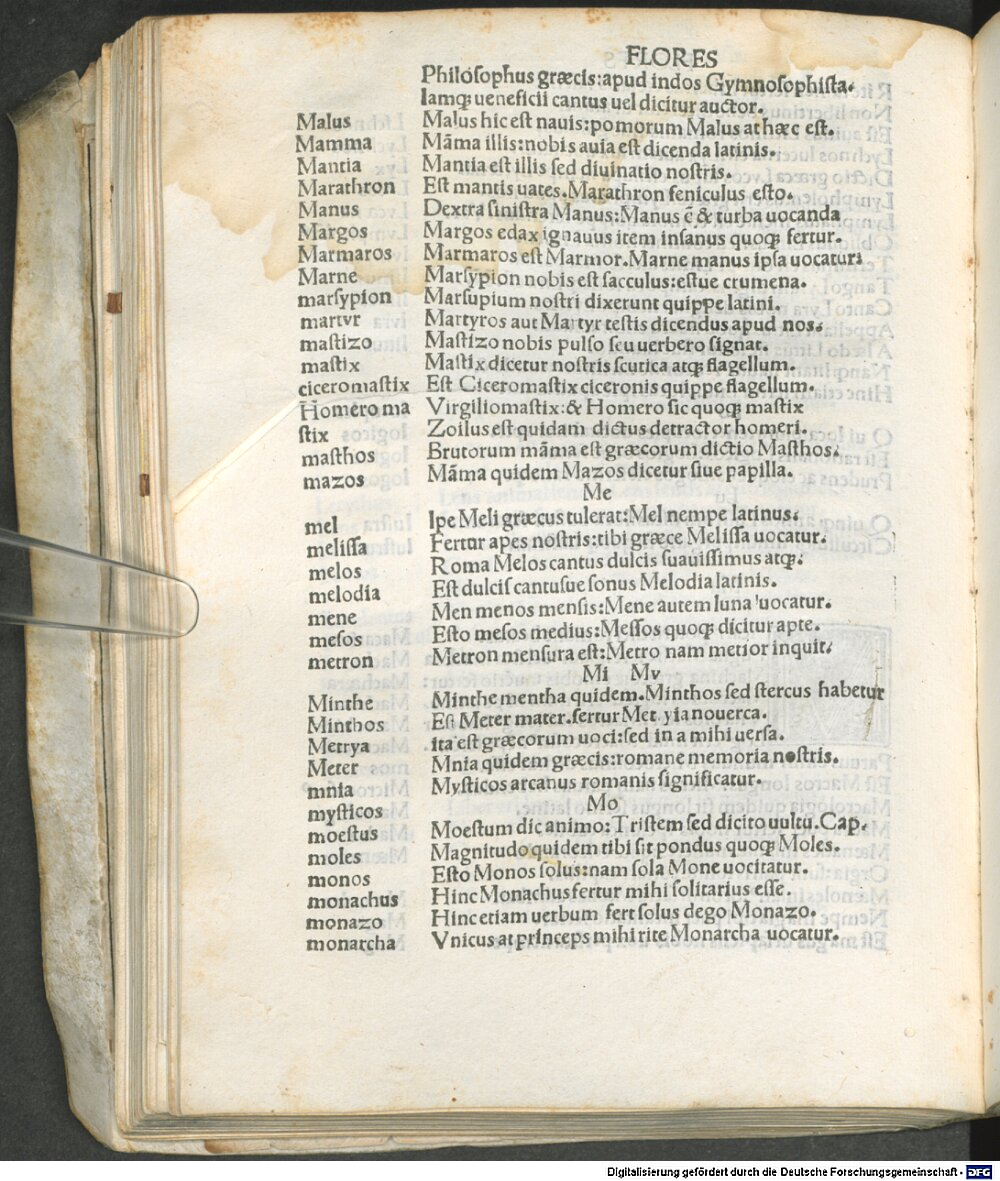 FLORES
Philosophus græcis:apud indos Gymnosophista.
Iamqꝫ ueneficii cantus uel dicitur auctor.
Malus Malus hic est nauis:pomorum Malus at hæc est.
Mamma Māma illis:nobis auia est dicenda latinis.
Mantia Mantia est illis sed diuinatio nostris.
Marathron Est mantis uates.Marathron feniculus esto.
Manus Dextra sinistra Manus:Manus ē & turba uocanda
Margos Margos edax ignauus item insanus quoqꝫ fertur.
Marmaros Marmaros est Marmor.Marne manus ipsa uocatur:
Marne Marsypion nobis est sacculus:estue crumena.
marsypion Marsupium nostri dixerunt quippe latini.
martyr Martyros aut Martyr testis dicendus apud nos.
mastizo Mastizo nobis pulso seu uerbero signat.
mastix Mastix dicetur nostris scutica atqꝫ flagellum.
ciceromastix Est Ciceromastix ciceronis quippe flagellum.
Homero ma Virgiliomastix:& Homero sic quoqꝫ mastix
stix Zoilus est quidam dictus detractor homeri.
masthos Brutorum māma est græcorum dictio Masthos.
mazos Māma quidem Mazos dicetur siue papilla.
Me
mel Ipe Meli græcus tulerat:Mel nempe latinus.
melissa Fertur apes nostris:tibi græce Melissa uocatur.
melos Roma Melos cantus dulcis suauissimus atqꝫ.
melodia Est dulcis cantusue sonus Melodia latinis.
mene Men menos mensis:Mene autem luna uocatur.
mesos Esto mesos medius:Messos quoqꝫ dicitur apte.
metron Metron mensura est:Metro nam metior inquit.
Mi Mv
Minthe Minthe mentha quidem.Minthos sed stercus habetur
Minthos Est Meter mater.fertur Met yia nouerca.
Metrya ita est græcorum uoci:sed in a mihi uersa.
Meter Mnia quidem græcis:romane memoria nostris.
mnia Mysticos arcanus romanis significatur.
mysticos
Mo
moestus Moestum dic animo:Tristem sed dicito uultu.Cap.
moles Magnitudo quidem tibi sit pondus quoqꝫ Moles.
monos Esto Monos solus:nam sola Mone uocitatur.
monachus Hinc Monachus fertur mihi solitarius esse.
monazo Hinc etiam uerbum fert solus dego Monazo.
monarcha Vnicus at princeps mihi rite Monarcha uocatur.
Digitalisierung gefördert durch die Deutsche Forschungsgemeinschaft - DFG